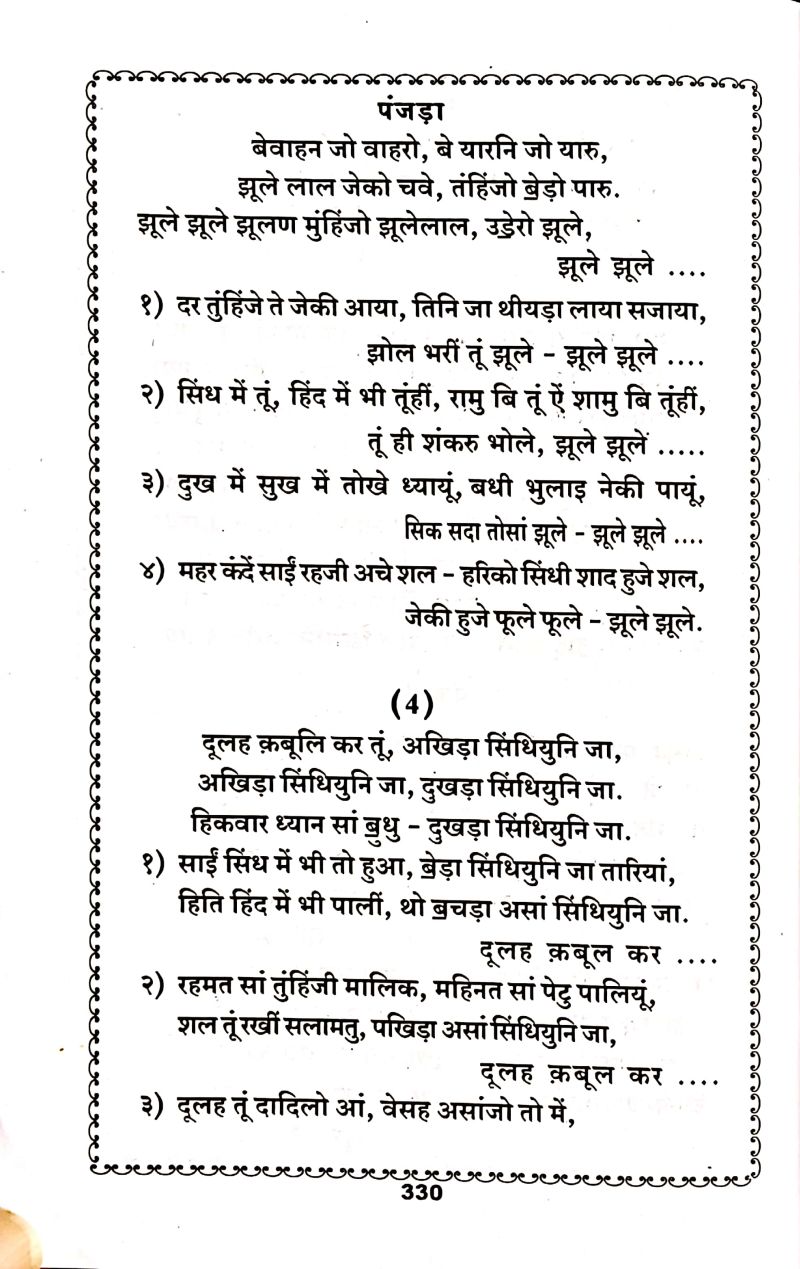 पंजड़ा
बेवाहन जो वाहरो, बे यारनि जो यारु,
झूले लाल जेको चवे, तंहिंजो ॿेड़ो पारु.
झूले झूले झूलण मुंहिंजो झूलेलाल, उॾेरो झूले,
झूले झूले ....
१) दर तुंहिंजे ते जेकी आया, तिनि जा थीयड़ा लाया सजाया,
झोल भरीं तूं झूले - झूले झूले ....
२) सिंध में तूं, हिंद में भी तूंहीं, रामु बि तूं ऐं शामु बि तूंहीं,
तूं ही शंकरु भोले, झूले झूलें .....
३) दुख में सुख में तोखे ध्यायूं, बधी भुलाइ नेकी पायूं,
सिक सदा तोसां झूले - झूले झूले ....
४) महर कंदें साईं रहजी अचे शल - हरिको सिंधी शाद हुजे शल,
जेकी हुजे फूले फूले - झूले झूले.
(4)
दूलह क़बूलि कर तूं, अखिड़ा सिंधियुनि जा,
अखिड़ा सिंधियुनि जा, दुखड़ा सिंधियुनि जा.
हिकवार ध्यान सां ॿुधु - दुखड़ा सिंधियुनि जा.
१) साईं सिंध में भी तो हुआ, ॿेड़ा सिंधियुनि जा तारियां,
हिति हिंद में भी पालीं, थो ॿचड़ा असां सिंधियुनि जा.
दूलह क़बूल कर ....
२) रहमत सां तुंहिंजी मालिक, महिनत सां पेटु पालियूं,
शल तूं रखीं सलामतु, पखिड़ा असां सिंधियुनि जा,
दूलह क़बूल कर ....
३) दूलह तूं दादिलो आं, वेसह असांजो तो में,
330